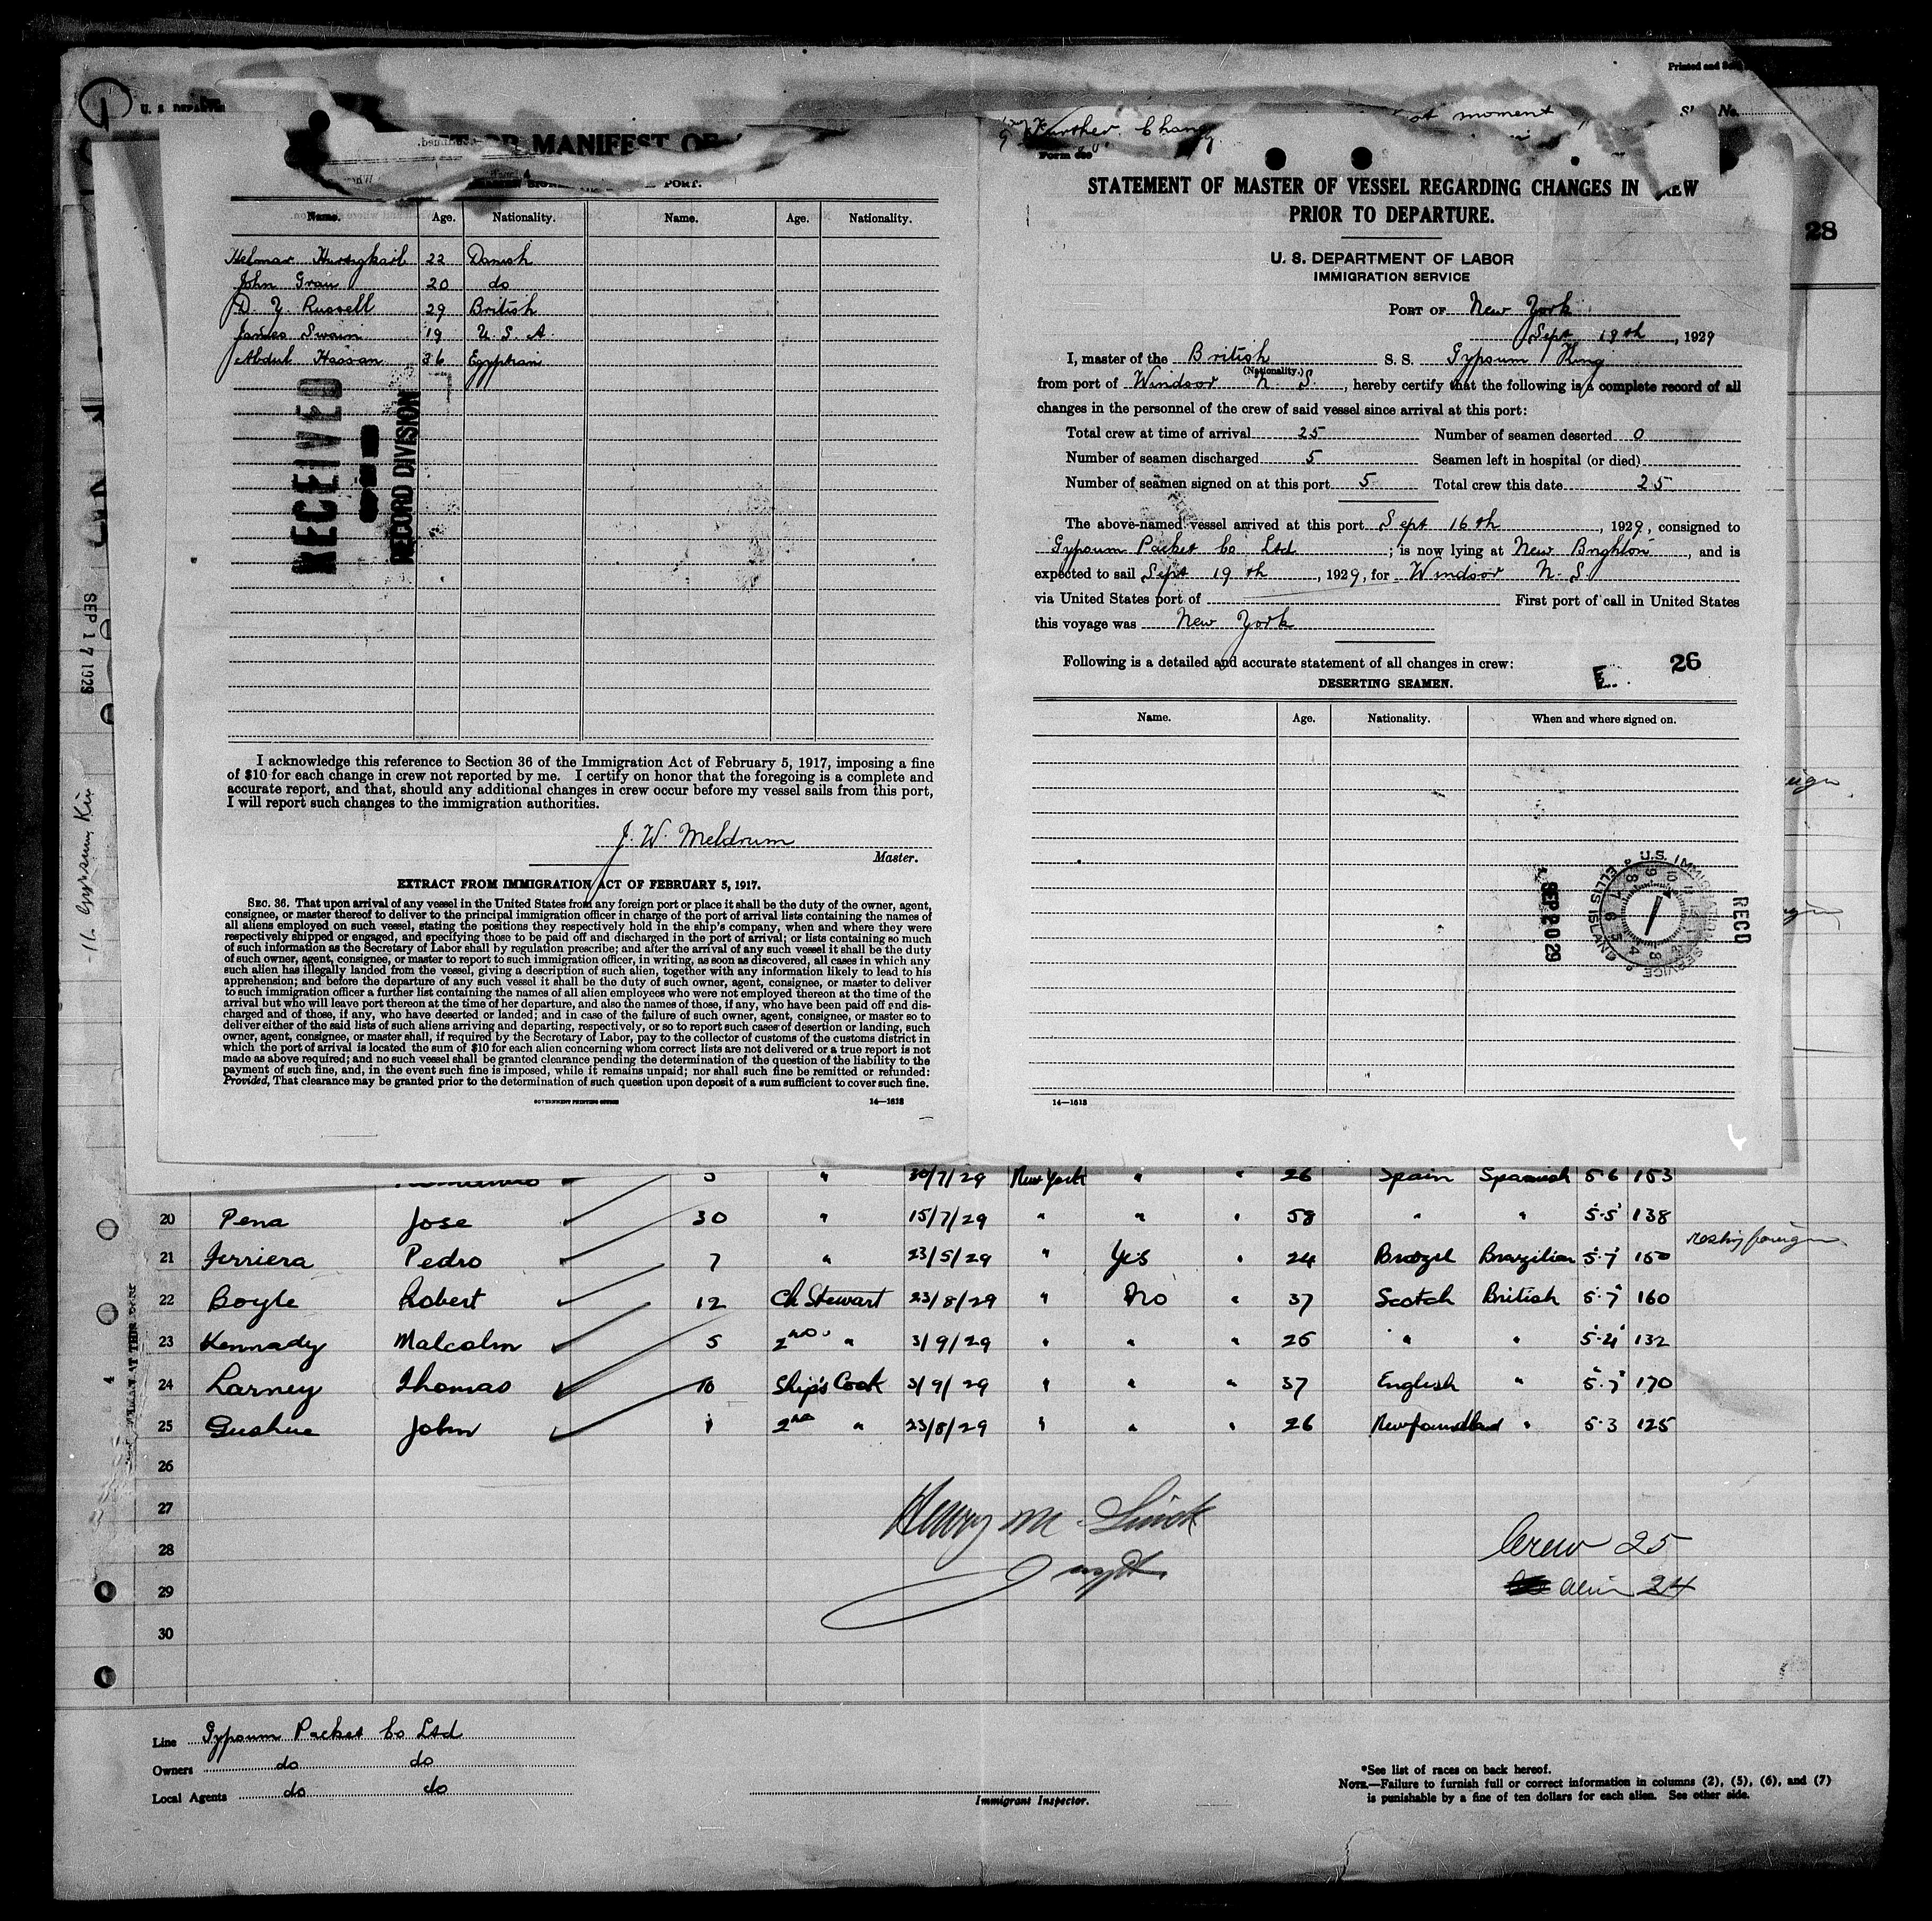 U. S. DEPARTM
Printed and So
No.
28
Further Chang
at moment
MANIFEST OF
PORT.
Name. Age. Nationality. Name. Age. Nationality.
Helmar 22 Danish
John Grau 20 do
D. Y. Russell 29 British
James Swain 19 U S A.
Abdul Hassan 36 Egyptian
RECEIVED
RECORD DIVISION
I acknowledge this reference to Section 36 of the Immigration Act of February 5, 1917, imposing a fine
of $10 for each change in crew not reported by me. I certify on honor that the foregoing is a complete and
accurate report, and that, should any additional changes in crew occur before my vessel sails from this port,
I will report such changes to the immigration authorities.
J. W. Meldrum
Master.
EXTRACT FROM IMMIGRATION ACT OF FEBRUARY 5, 1917.
SEC. 36. That upon arrival of any vessel in the United States from any foreign port or place it shall be the duty of the owner, agent,
consignee, or master thereof to deliver to the principal immigration officer in charge of the port of arrival lists containing the names of
all aliens employed on such vessel, stating the positions they respectively hold in the ship's company, when and where they were
respectively shipped or engaged, and specifying those to be paid off and discharged in the port of arrival; or lists containing so much
of such information as the Secretary of Labor shall by regulation prescribe; and after the arrival of any such vessel it shall be the duty
of such owner, agent, consignee, or master to report to such immigration officer, in writing, as soon as discovered, all cases in which any
such alien has illegally landed from the vessel, giving a description of such alien, together with any information likely to lead to his
apprehension; and before the departure of any such vessel it shall be the duty of such owner, agent, consignee, or master to deliver
to such immigration officer a further list containing the names of all alien employees who were not employed thereon at the time of the
arrival but who will leave port thereon at the time of her departure, and also the names of those, if any, who have been paid off and dis-
charged and of those, if any, who have deserted or landed; and in case of the failure of such owner, agent, consignee, or master so to
deliver either of the said lists of such aliens arriving and departing, respectively, or so to report such cases of desertion or landing, such
owner, agent, consignee, or master shall, if required by the Secretary of Labor, pay to the collector of customs of the customs district in
which the port of arrival is located the sum of $10 for each alien concerning whom correct lists are not delivered or a true report is not
made as above required; and no such vessel shall be granted clearance pending the determination of the question of the liability to the
payment of such fine, and, in the event such fine is imposed, while it remains unpaid; nor shall such fine be remitted or refunded:
Provided, That clearance may be granted prior to the determination of such question upon deposit of a sum sufficient to cover such fine.
GOVERNMENT PRINTING OFFICE 14—1618
STATEMENT OF MASTER OF VESSEL REGARDING CHANGES IN EW
PRIOR TO DEPARTURE.
U. S. DEPARTMENT OF LABOR
IMMIGRATION SERVICE
PORT OF New York
Sept 18th, 1929
I, master of the British S. S. Gypsum King
(Nationality.)
from port of Windsor N. S., hereby certify that the following is a complete record of all
changes in the personnel of the crew of said vessel since arrival at this port:
Total crew at time of arrival 25 Number of seamen deserted 0
Number of seamen discharged 5 Seamen left in hospital (or died)
Number of seamen signed on at this port 5 Total crew this date 25
The above-named vessel arrived at this port Sept 16th, 1929, consigned to
Gypsum Packet Co Ltd; is now lying at New Brighton, and is
expected to sail Sept 19th, 1929, for Windsor N. S
via United States port of First port of call in United States
this voyage was New York
Following is a detailed and accurate statement of all changes in crew:
E. 26
DESERTING SEAMEN.
Name. Age. Nationality. When and where signed on.
RECD
U.S. IMMIGRATION SERVICE
ELLIS ISLAND
SEP 20 29
14—1618
SEP 17 1929
Gypsum Kin
5 " 30/7/29 New York " " 26 Spain Spanish 5·6 153
20 Pena Jose 30 " 15/7/29 " " " 58 " " 5·5 138
21 Ferriera Pedro 7 " 23/5/29 " Yes " 24 Brazil Brazilian 5·7 150
22 Boyle Robert 12 Ch Stewart 23/8/29 " No " 37 Scotch British 5·7 160
23 Kennady Malcolm 5 2nd " 3/9/29 " " " 25 " " 5·4 132
24 Larney Thomas 10 Ship's Cook 3/9/29 " " " 37 English " 5·7 170
25 Gushue John 1 2nd " 23/8/29 " " " 26 Newfoundland " 5·3 125
26
27
28
29
30
Henry M
Crew 25
24
Line Gypsum Packet Co Ltd
Owners do do
Local Agents do do
Immigrant Inspector.
*See list of races on back hereof.
NOTE.—Failure to furnish full or correct information in columns (2), (5), (6), and (7)
is punishable by a fine of ten dollars for each alien. See other side.